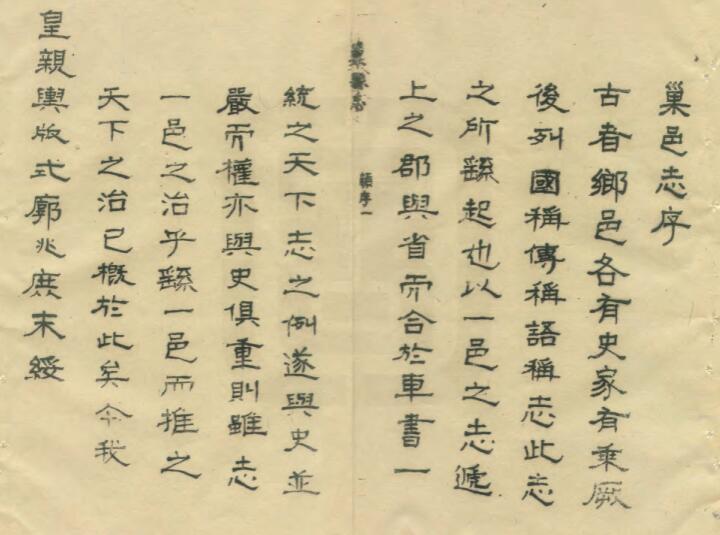 巢邑志序
古者鄉邑各有史家有乘厥
後列國稱傳稱語稱志此志
之所繇起也以一邑之志遞
上之郡與省而合於車書一
巢縣志
統之天下志之例遂與史並
嚴而權亦與史俱重則雖志
一邑之治乎繇一邑而推之
天下之治已概於此矣今我
皇親輿版式廓兆庶末綏